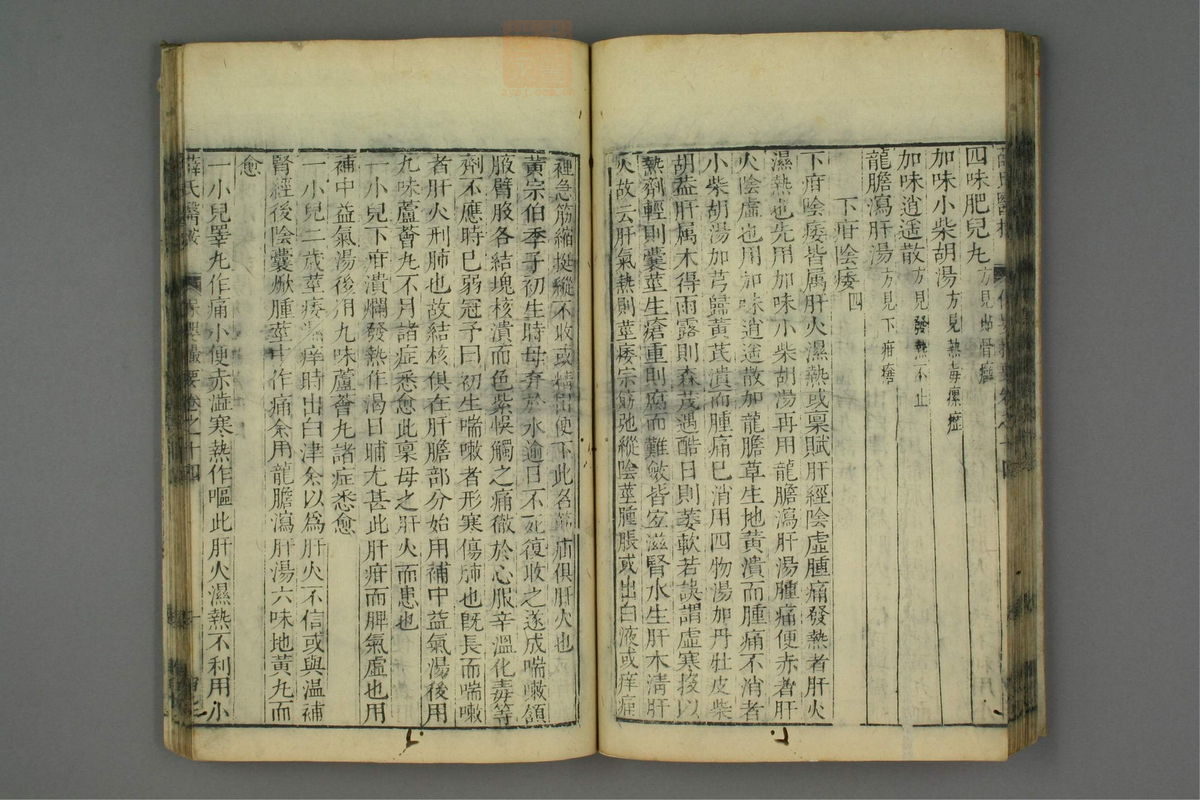 四味肥兒丸 方見
加味小柴胡湯 方見熱毒瘰癧
加味逍遥散 方見發熱不止
龍膽瀉肝湯 方見下疳瘡
下疳陰痿四
下疳陰痿皆属肝火濕熱或禀賦肝經陰虚腫痛發熱者肝火
濕熱也先用加味小柴胡湯再用龍膽瀉肝湯腫痛便赤者肝
火陰虚也用加味逍遥散加龍膽草生地黄潰而腫痛不消者
小柴胡湯加芎歸黄芪潰而腫痛已消用四物湯加丹牡皮柴
胡葢肝属木得雨露則森茂遇酷日則萎軟若誤謂虚寒投以
熱劑輕則囊莖生瘡重則腐而難斂皆宜滋腎水生肝木清肝
火故云肝氣熱則莖痿宗筋弛縱陰莖腫脹或出白液或痒症
裡急筋縮挺縱不收或精出便下此名筋疝俱肝火也
黄宗伯季子初生時母弃於水逾日不死復收之遂成喘嗽頷
腋臂股各結塊核潰而色紫悞觸之痛徹於心服辛温化毒等
劑不應時已弱冠予曰初生喘嗽者形寒傷肺也旣長而喘嗽
者肝火刑肺也故結核俱在肝膽部分始用補中益氣湯後用
九味蘆薈丸不月諸症悉愈此禀母之肝火而患也
一小兒下疳潰爛發熱作渴日晡尤甚此肝疳而脾氣虚也用
補中益氣湯後用九味蘆薈丸諸症悉愈
一小兒二歲莖痿 痒時出白津余以爲肝火不信或與温補
腎經後陰囊焮腫莖中作痛余用龍膽瀉肝湯六味地黄丸而
愈
一小兒睪丸作痛小便赤澁寒熱作嘔此肝火濕熱不利用小
薛氏醫按 保嬰撮要卷之十四